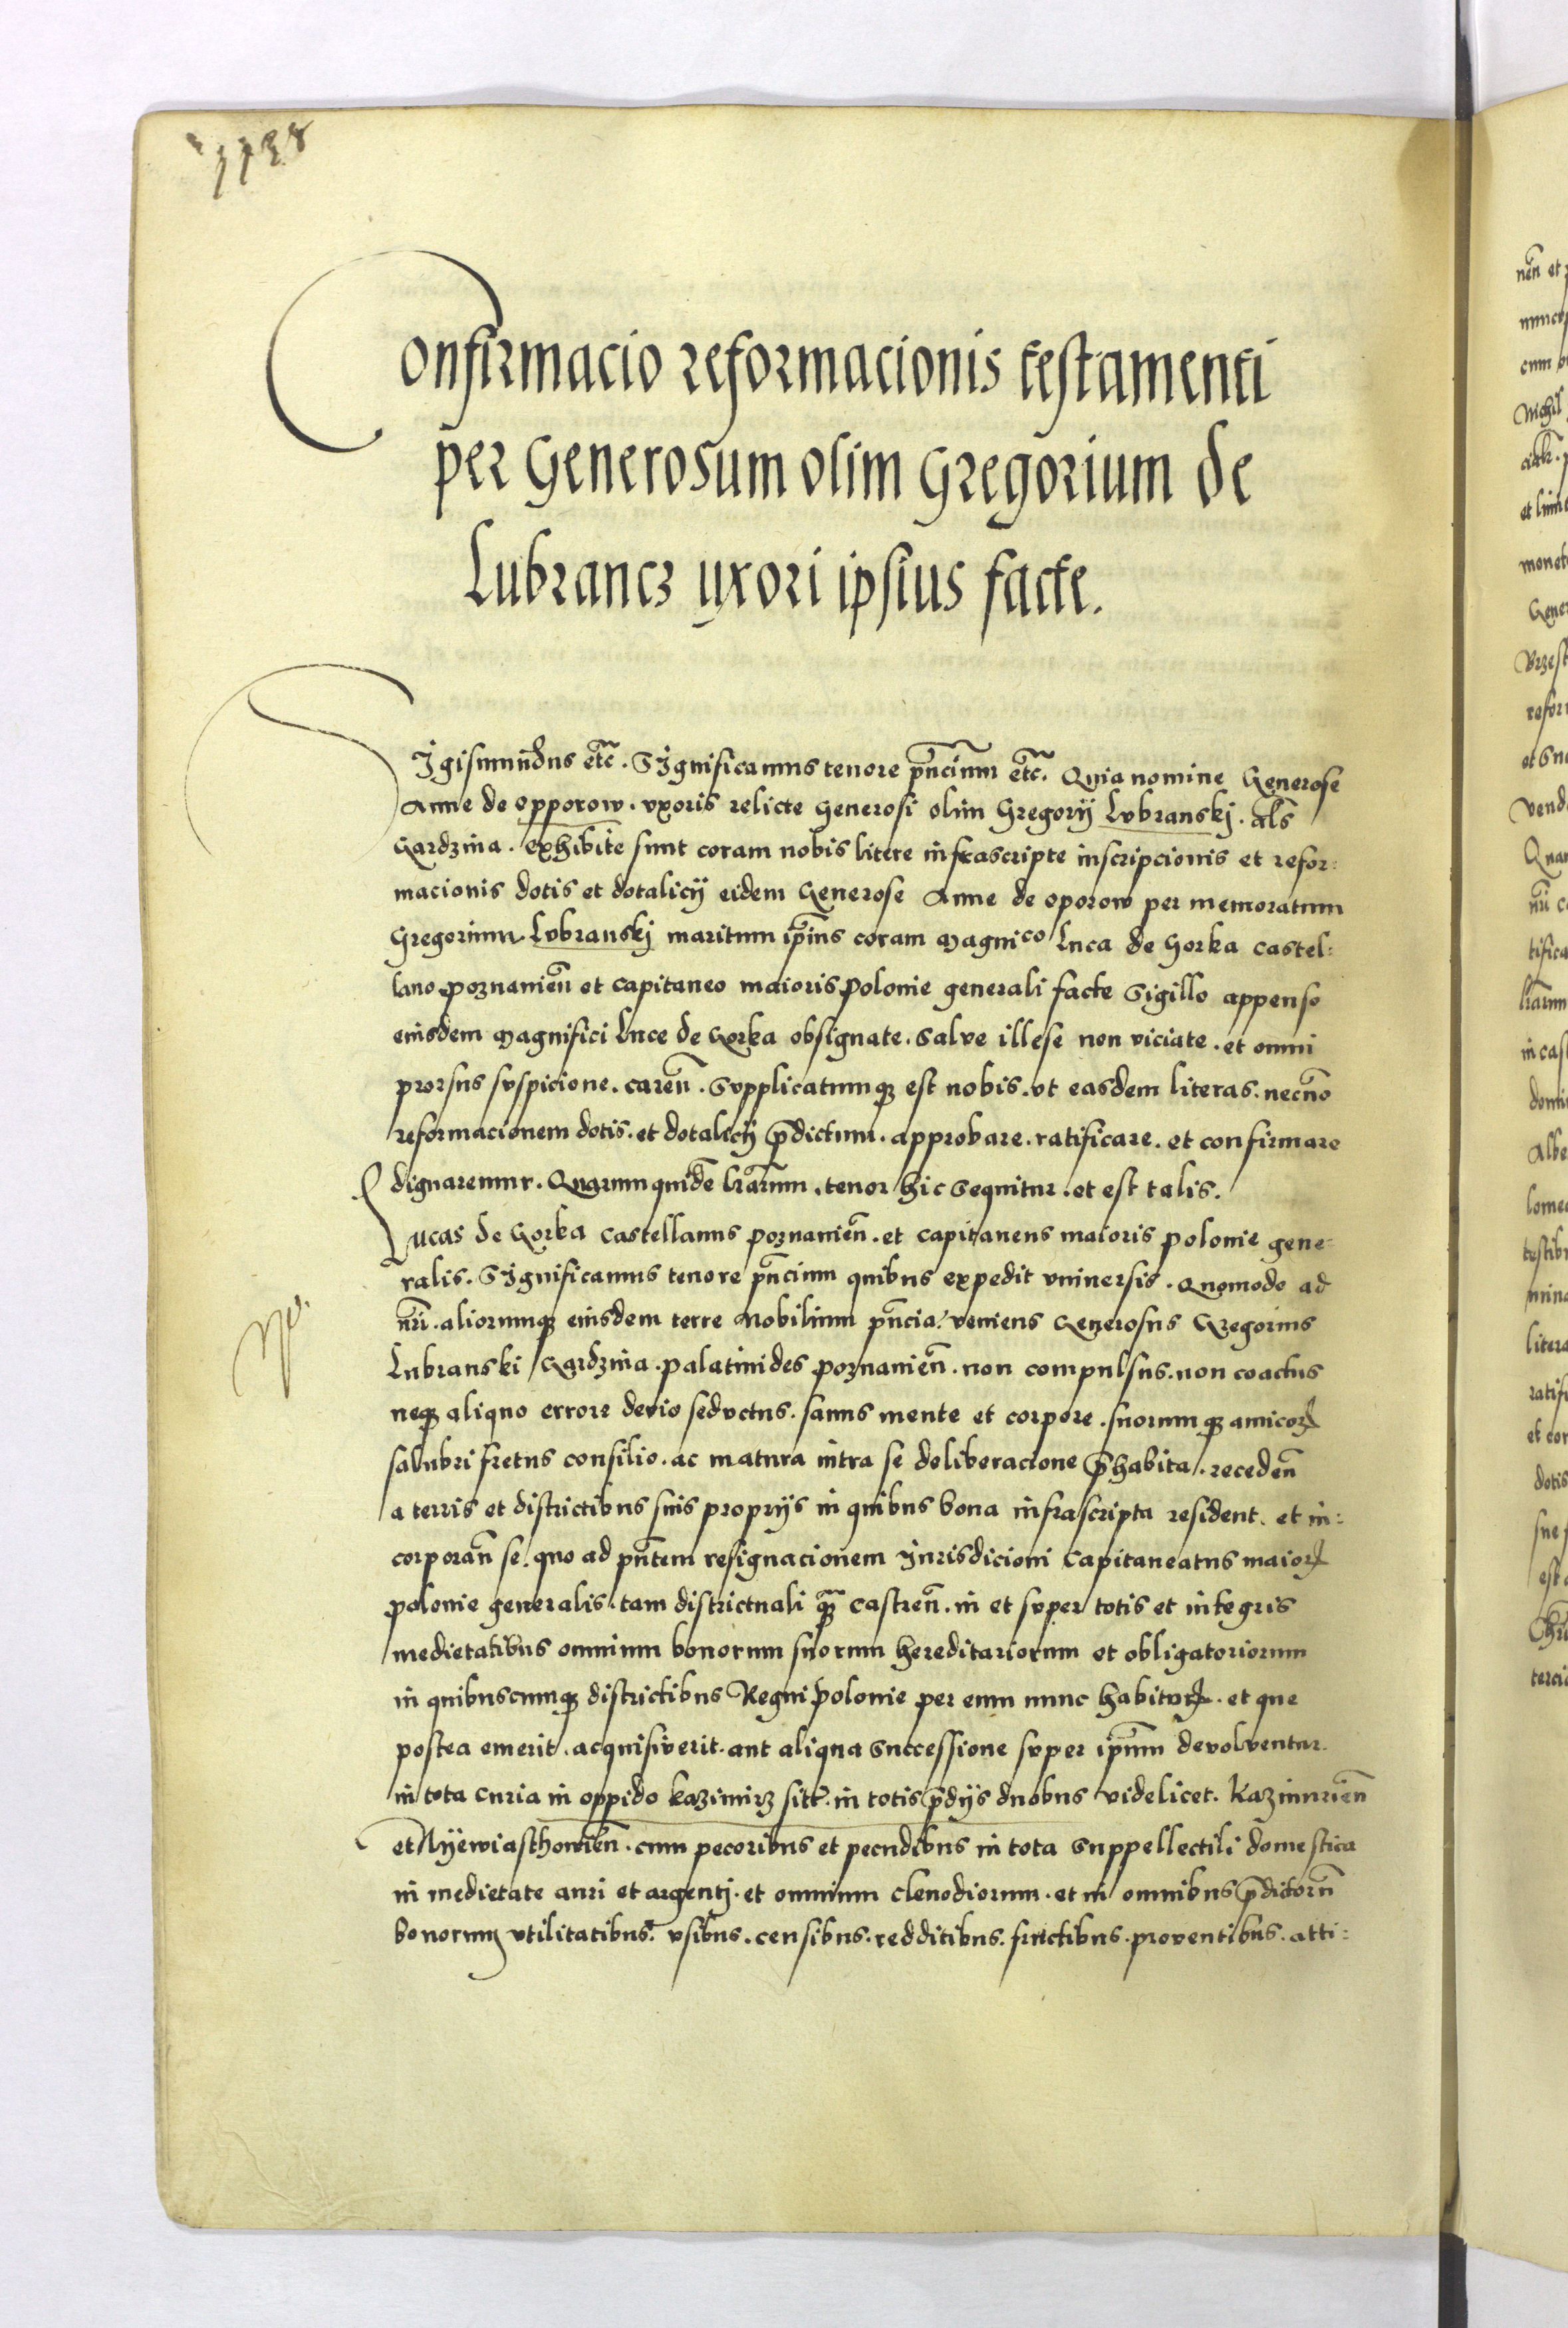 1138
Confirmacio reformacionis testamenti
per Generosum olim Gregorium de
Lubrancz uxori ipsius facte.
SJgismundus etc̃. SJgnificamus tenore pñcium etc̃. Quia nomine Generose
Anne de opporow. vxoris relicte Generosi olim Gregorij Lvbranskj. als̃
Gardzina. exhibite sunt coram nobis litere infrascripte inscripcionis et refor:
macionis dotis et dotalicij eidem Generose Anne de oporow per memoratum
Gregorium Lvbranskj maritum ip̃ius coram Magnico Luca de Gorka castel:
lano poznanień et capitaneo maioris polonie generali facte Sigillo appenso
eiusdem Magnifici Luce de Gorka obsignate. Salve illese non viciate. et omni
prorsus svspicione. careñ. Svpplicatumqꝫ est nobis. vt easdem literas. necñο
reformacionem dotis. et dotalicij p̃dictum. approbare. ratificare. et confirmare
dignaremur. Quarumquidẽ lrãrum. tenor hic Sequitur. et est talis.
Lucas de Gorka Castellanus poznanieñ. et capitaneus maioris polonie gene:
ralis. SJgnificamus tenore pñcium quibus expedit vniuersis. Quomodo ad
nr̃i. aliorumqꝫ eiusdem terre Nobilium pñcia. veniens Generosus Gregorius
Lubranski Gardzina. palatinides poznanieñ. non compulsus. non coactus
neqꝫ aliquo errore devio sedvctus. sanus mente et corpore. suorumqꝫ amicoꝝ
salubri fretus consilio. ac matura intra se deliberacione p̃habita. recedeñ
a terris et districtibus suis proprijs in quibus bona infrascripta resident. et in:
corporañ se. quo ad pñtem resignacionem Jurisdicioni Capitaneatus maioꝝ
polonie generalis. tam districtuali qꝫ̃ castreñ. in et svper totis et integris
medietatibus omnium bonorum suorum hereditariorum et obligatoriorum
in quibuscumqꝫ districtibus Regni polonie per eum nunc habitoꝝ. et que
postea emerit. acquisiverit. aut aliqua Successione svper ip̃um devolventur.
in tota Curia in oppido kazimirz sitt̃. in totis p̃dijs duobus videlicet. Kazimirieñ
et Nyewiasthowieñ. cum pecoribus et pecudibus in tota Suppellectili domestica
in medietate auri et argentj. et omnium clenodiorum. et in omnibus p̃dictorũ
bonorum vtilitatibus. vsibus. censibus. redditibus. fructibus. proventibus. atti: